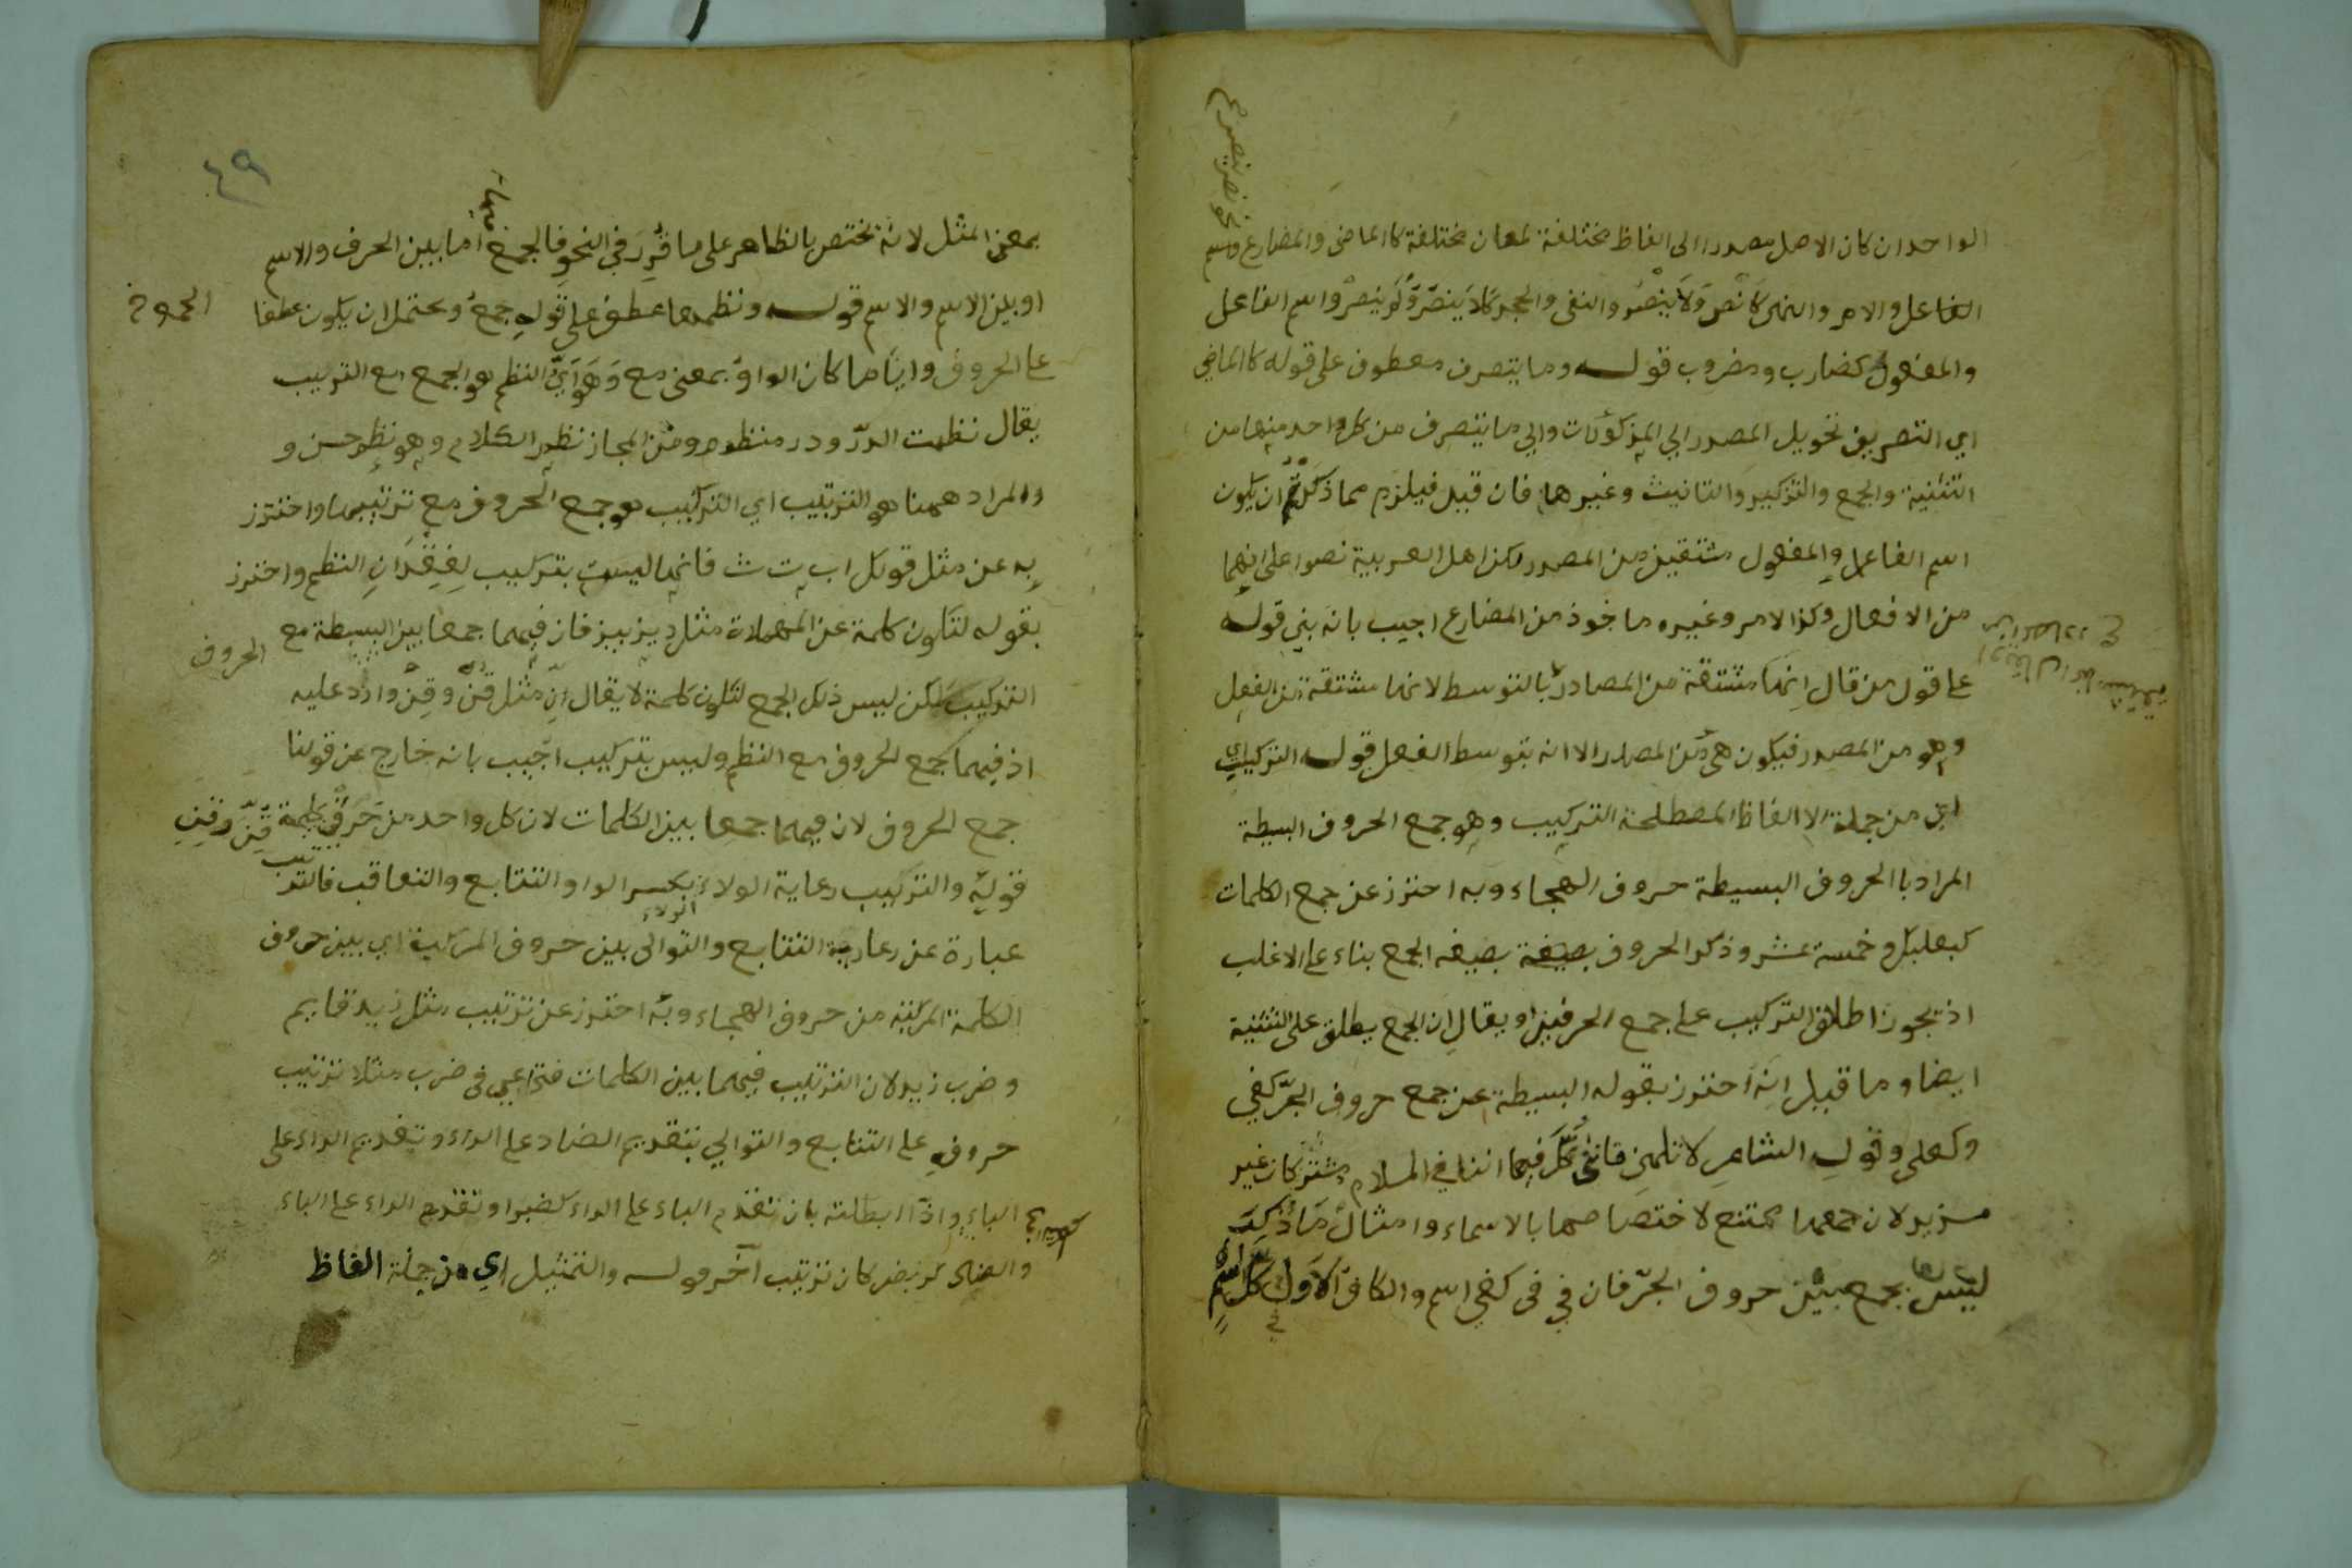 الواحد ان كان الاصل مصدرا الى الفاظ مختلفة لمعان مختلفة كالماضى والمضارع واسم
نحو نصر ينصر
الفاعل والامر والنهى كانصر ولا ينصر والنفى والجحد كلا ينصر ولم ينصر واسم الفاعل
والمفعول كضارب ومضروب قوله وما يتصرف معطوف على قوله كالماضي
اي التصريف تحويل المصدر الي المذكورات والي ما يتصرف من كل واحد منها من
التثنية والجمع والتذكير والتانيث وغيرها فان قيل فيلزم مما ذكرتم ان يكون
اسم الفاعل والمفعول مشتقين من المصدر لكن اهل العربية نصوا على انهما
من الافعال وكذا الامر وغيره ماخوذ من المضارع اجيب بانه بني قوله
على قول من قال انها مشتقة من المصادر بالتوسط لانها مشتقة من الفعل
وهو من المصدر فيكون هى من المصدر الا انه بتوسط الفعل قوله التركيب
اي من جملة الالفاظ المصطلحة التركيب وهو جمع الحروف البسيطة
المراد بالحروف البسيطة حروف الهجاء وبه احترز عن جمع الكلمات
كبعلبك وخمسة عشر وذكر الحروف بصيغة بصيغه الجمع بناء على الاغلب
اذ يجوز اطلاق التركيب على جمع الحرفين او يقال ان الجمع يطلق على التثنية
ايضا وما قيل انه احترز بقوله البسيطة عن جمع حروف الجر كفي
وكعلى وقول الشاعر لا تلمني فانني فيما اننا في الملام مشتركان غير
سزيد لان جمعها ممتنع لاختصاصها بالاسماء وامثال ما ذكر
ليس بجمع بين حروف الجر فان في فى كفي اسم والكاف الاول
٤٩
بمعنى المثل لانه مختص بالظاهر على ما قرر في النحو فالجمع فيها اما بين الحرف والاسم
او بين الاسم والاسم قوله ونظمها عطف على قوله جمع ويحتمل ان يكون عطفا
على الحروف وايا ما كان الواو بمعنى مع وهو اي النظم هو الجمع مع الترتيب
يقال نظمت الدر ودر منظوم ومن المجاز نظم الكلام وهو نظم حسن و
والمراد ههنا هو الترتيب اي التركيب هو جمع الحروف مع ترتيبها واحترز
به عن مثل قولك اب ت ث فانها ليست بتركيب لفقدان النظم واحترز
بقوله لتكون كلمة عن المهملات مثل ديز بيز فان فيهما جمعا بين البسيطة مع
الحروف
التركيب لكن ليس ذلك الجمع لتكون كلمة لا يقال ان مثل قن وقن وارد عليه
اذ فيهما يجمع الحروف مع النظم وليس بتركيب اجيب بانه خارج عن قولنا
جمع الحروف لان فيهما جمعا بين الكلمات لان كل واحد من حرفي كلمة قن وقن
قوله والتركيب رعاية الولاء بكسر الواو والتتابع والتعاقب فالترتيب
عبارة عن رعاية التتابع والتوالى بين حروف المركبة اي بين حروف
الكلمة المركبة من حروف الهجاء وبه احترز عن ترتيب مثل زيد قايم
وضرب زيد لان الترتيب فيهما بين الكلمات فتراعي فى ضرب مثلا ترتيب
حروفه على التتابع والتوالي بتقديم الضاد على الراء وتقديم الراء على
الباء واذا ابطلته بان تقدم الباء على الراء كضبر او تقدم الراء على الباء
والضاد كربض كان ترتيب آخر قوله والتمثيل اي من جملة الفاظ